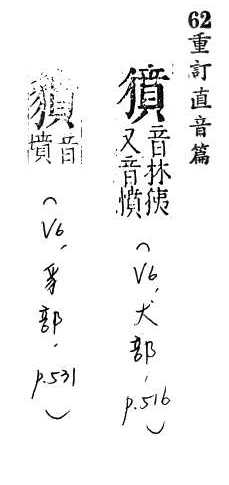 62重訂直音篇
獖
音
又音憤
（V6, 犬部, p.516）
音墳
（V6, 豸部, p.531）